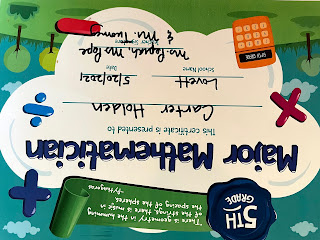 5TH
GRADE
There is geometry in the humming
of the strings, there is music in
the spacing of the spheres.
-Pythagoras
Major Mathematician
This certificate is presented to
Carter Holden
Lovett 5/20/2021
School Name Date
Ms. Pope
& Mr.